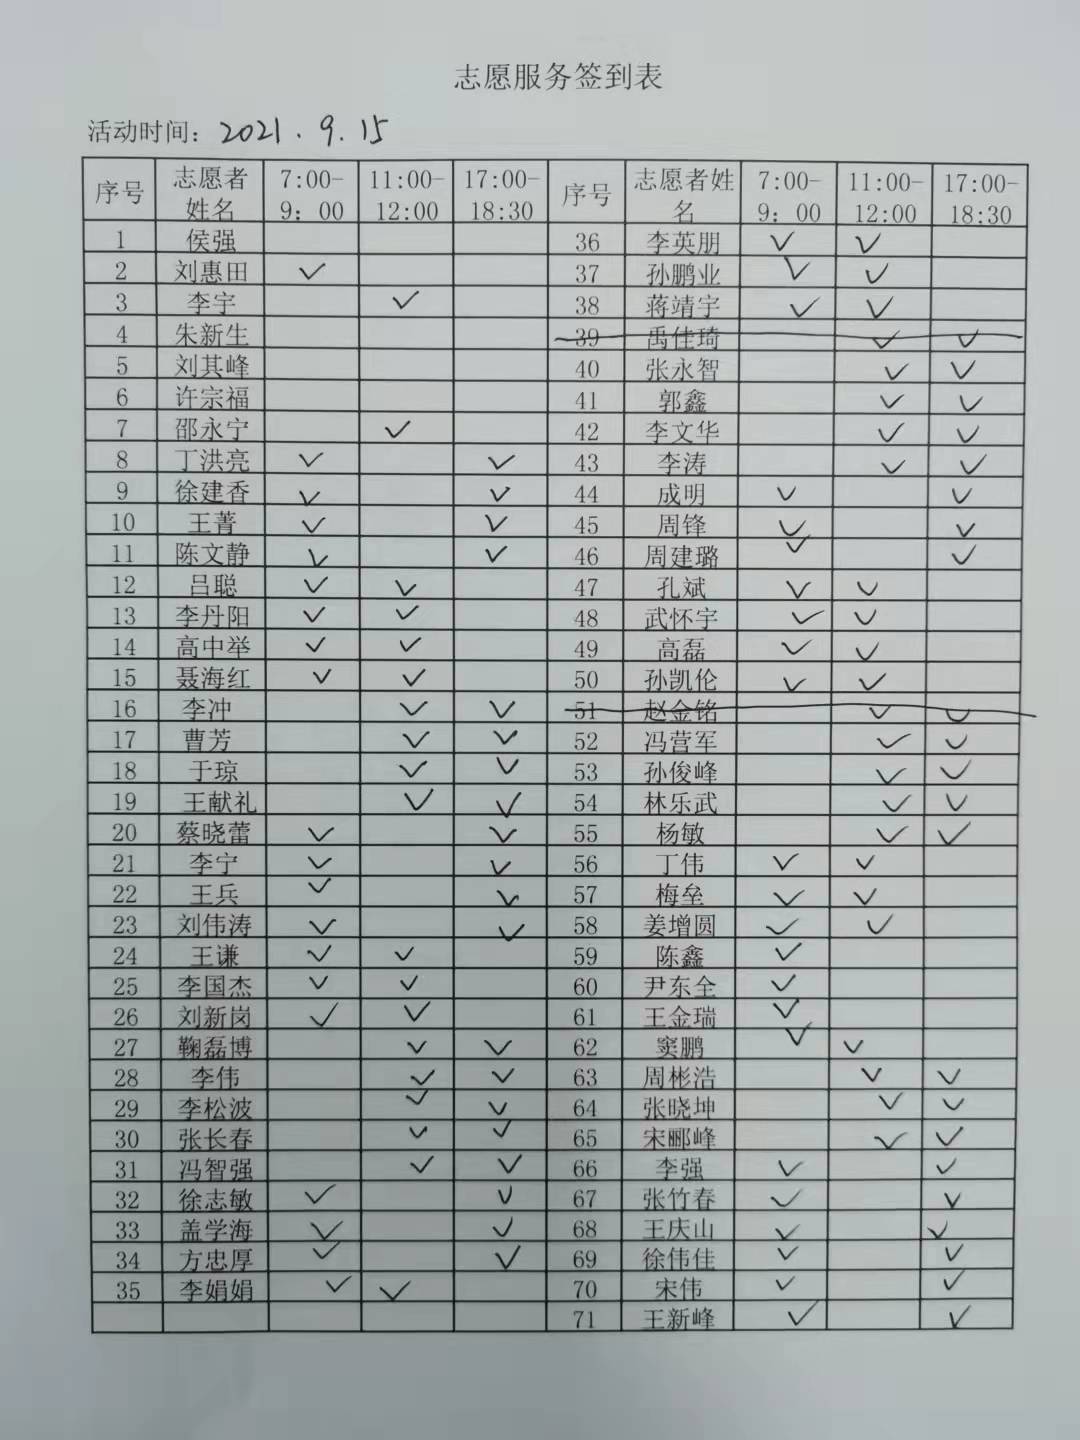 志愿服务签到表
活动时间: 2021.9.15
序号 志愿者姓名 7:00-9：00 11:00-12:00 17:00-18:30 序号 志愿者姓名 7:00-9：00 11:00-12:00 17:00-18:30
1 侯强 36 李英朋 ✓ ✓
2 刘惠田 ✓ 37 孙鹏业 ✓ ✓
3 李宇 ✓ 38 蒋靖宇 ✓ ✓
4 朱新生 39 禹佳琦 ✓ ✓
5 刘其峰 40 张永智 ✓ ✓
6 许宗福 41 郭鑫 ✓ ✓
7 邵永宁 ✓ 42 李文华 ✓ ✓
8 丁洪亮 ✓ ✓ 43 李涛 ✓ ✓
9 徐建香 ✓ ✓ 44 成明 ✓ ✓
10 王菁 ✓ ✓ 45 周锋 ✓ ✓
11 陈文静 ✓ ✓ 46 周建璐 ✓ ✓
12 吕聪 ✓ ✓ 47 孔斌 ✓ ✓
13 李丹阳 ✓ ✓ 48 武怀宇 ✓ ✓
14 高中举 ✓ ✓ 49 高磊 ✓ ✓
15 聂海红 ✓ ✓ 50 孙凯伦 ✓ ✓
16 李冲 ✓ ✓ 51 赵金铭 ✓ ✓
17 曹芳 ✓ ✓ 52 冯营军 ✓ ✓
18 于琼 ✓ ✓ 53 孙俊峰 ✓ ✓
19 王献礼 ✓ ✓ 54 林乐武 ✓ ✓
20 蔡晓蕾 ✓ ✓ 55 杨敏 ✓ ✓
21 李宁 ✓ ✓ 56 丁伟 ✓ ✓
22 王兵 ✓ ✓ 57 梅垒 ✓ ✓
23 刘伟涛 ✓ ✓ 58 姜增圆 ✓ ✓
24 王谦 ✓ ✓ 59 陈鑫 ✓
25 李国杰 ✓ ✓ 60 尹东全 ✓
26 刘新岗 ✓ ✓ 61 王金瑞 ✓
27 鞠磊博 ✓ ✓ 62 窦鹏 ✓ ✓
28 李伟 ✓ ✓ 63 周彬浩 ✓ ✓
29 李松波 ✓ ✓ 64 张晓坤 ✓ ✓
30 张长春 ✓ ✓ 65 宋郦峰 ✓ ✓
31 冯智强 ✓ ✓ 66 李强 ✓ ✓
32 徐志敏 ✓ ✓ 67 张竹春 ✓ ✓
33 盖学海 ✓ ✓ 68 王庆山 ✓ ✓
34 方忠厚 ✓ ✓ 69 徐伟佳 ✓ ✓
35 李娟娟 ✓ ✓ 70 宋伟 ✓ ✓
71 王新峰 ✓ ✓